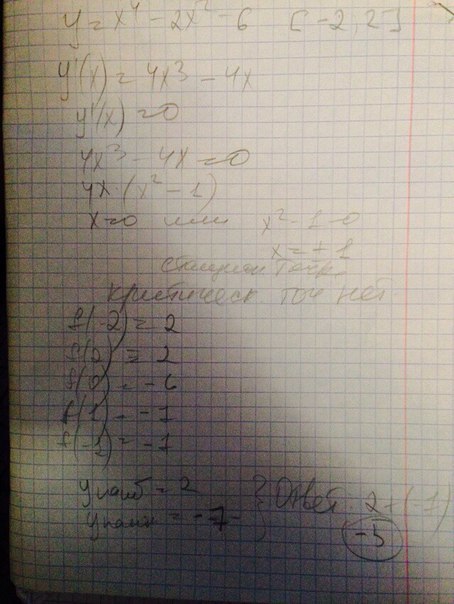 y = x⁴ - 2x² - 6 [-2, 2]
y'(x) = 4x³ - 4x
y'(x) = 0
4x³ - 4x = 0
4x·(x² - 1)
x=0 или x² - 1 = 0
x = ± 1
стацион точк
критическ. точ нет.
f(-2) = 2
f(2) = 2
f(0) = -6
f(1) = -7
f(-1) = -7
y наиб = 2
y наим = -7
Ответ 2 + (-7)
-5